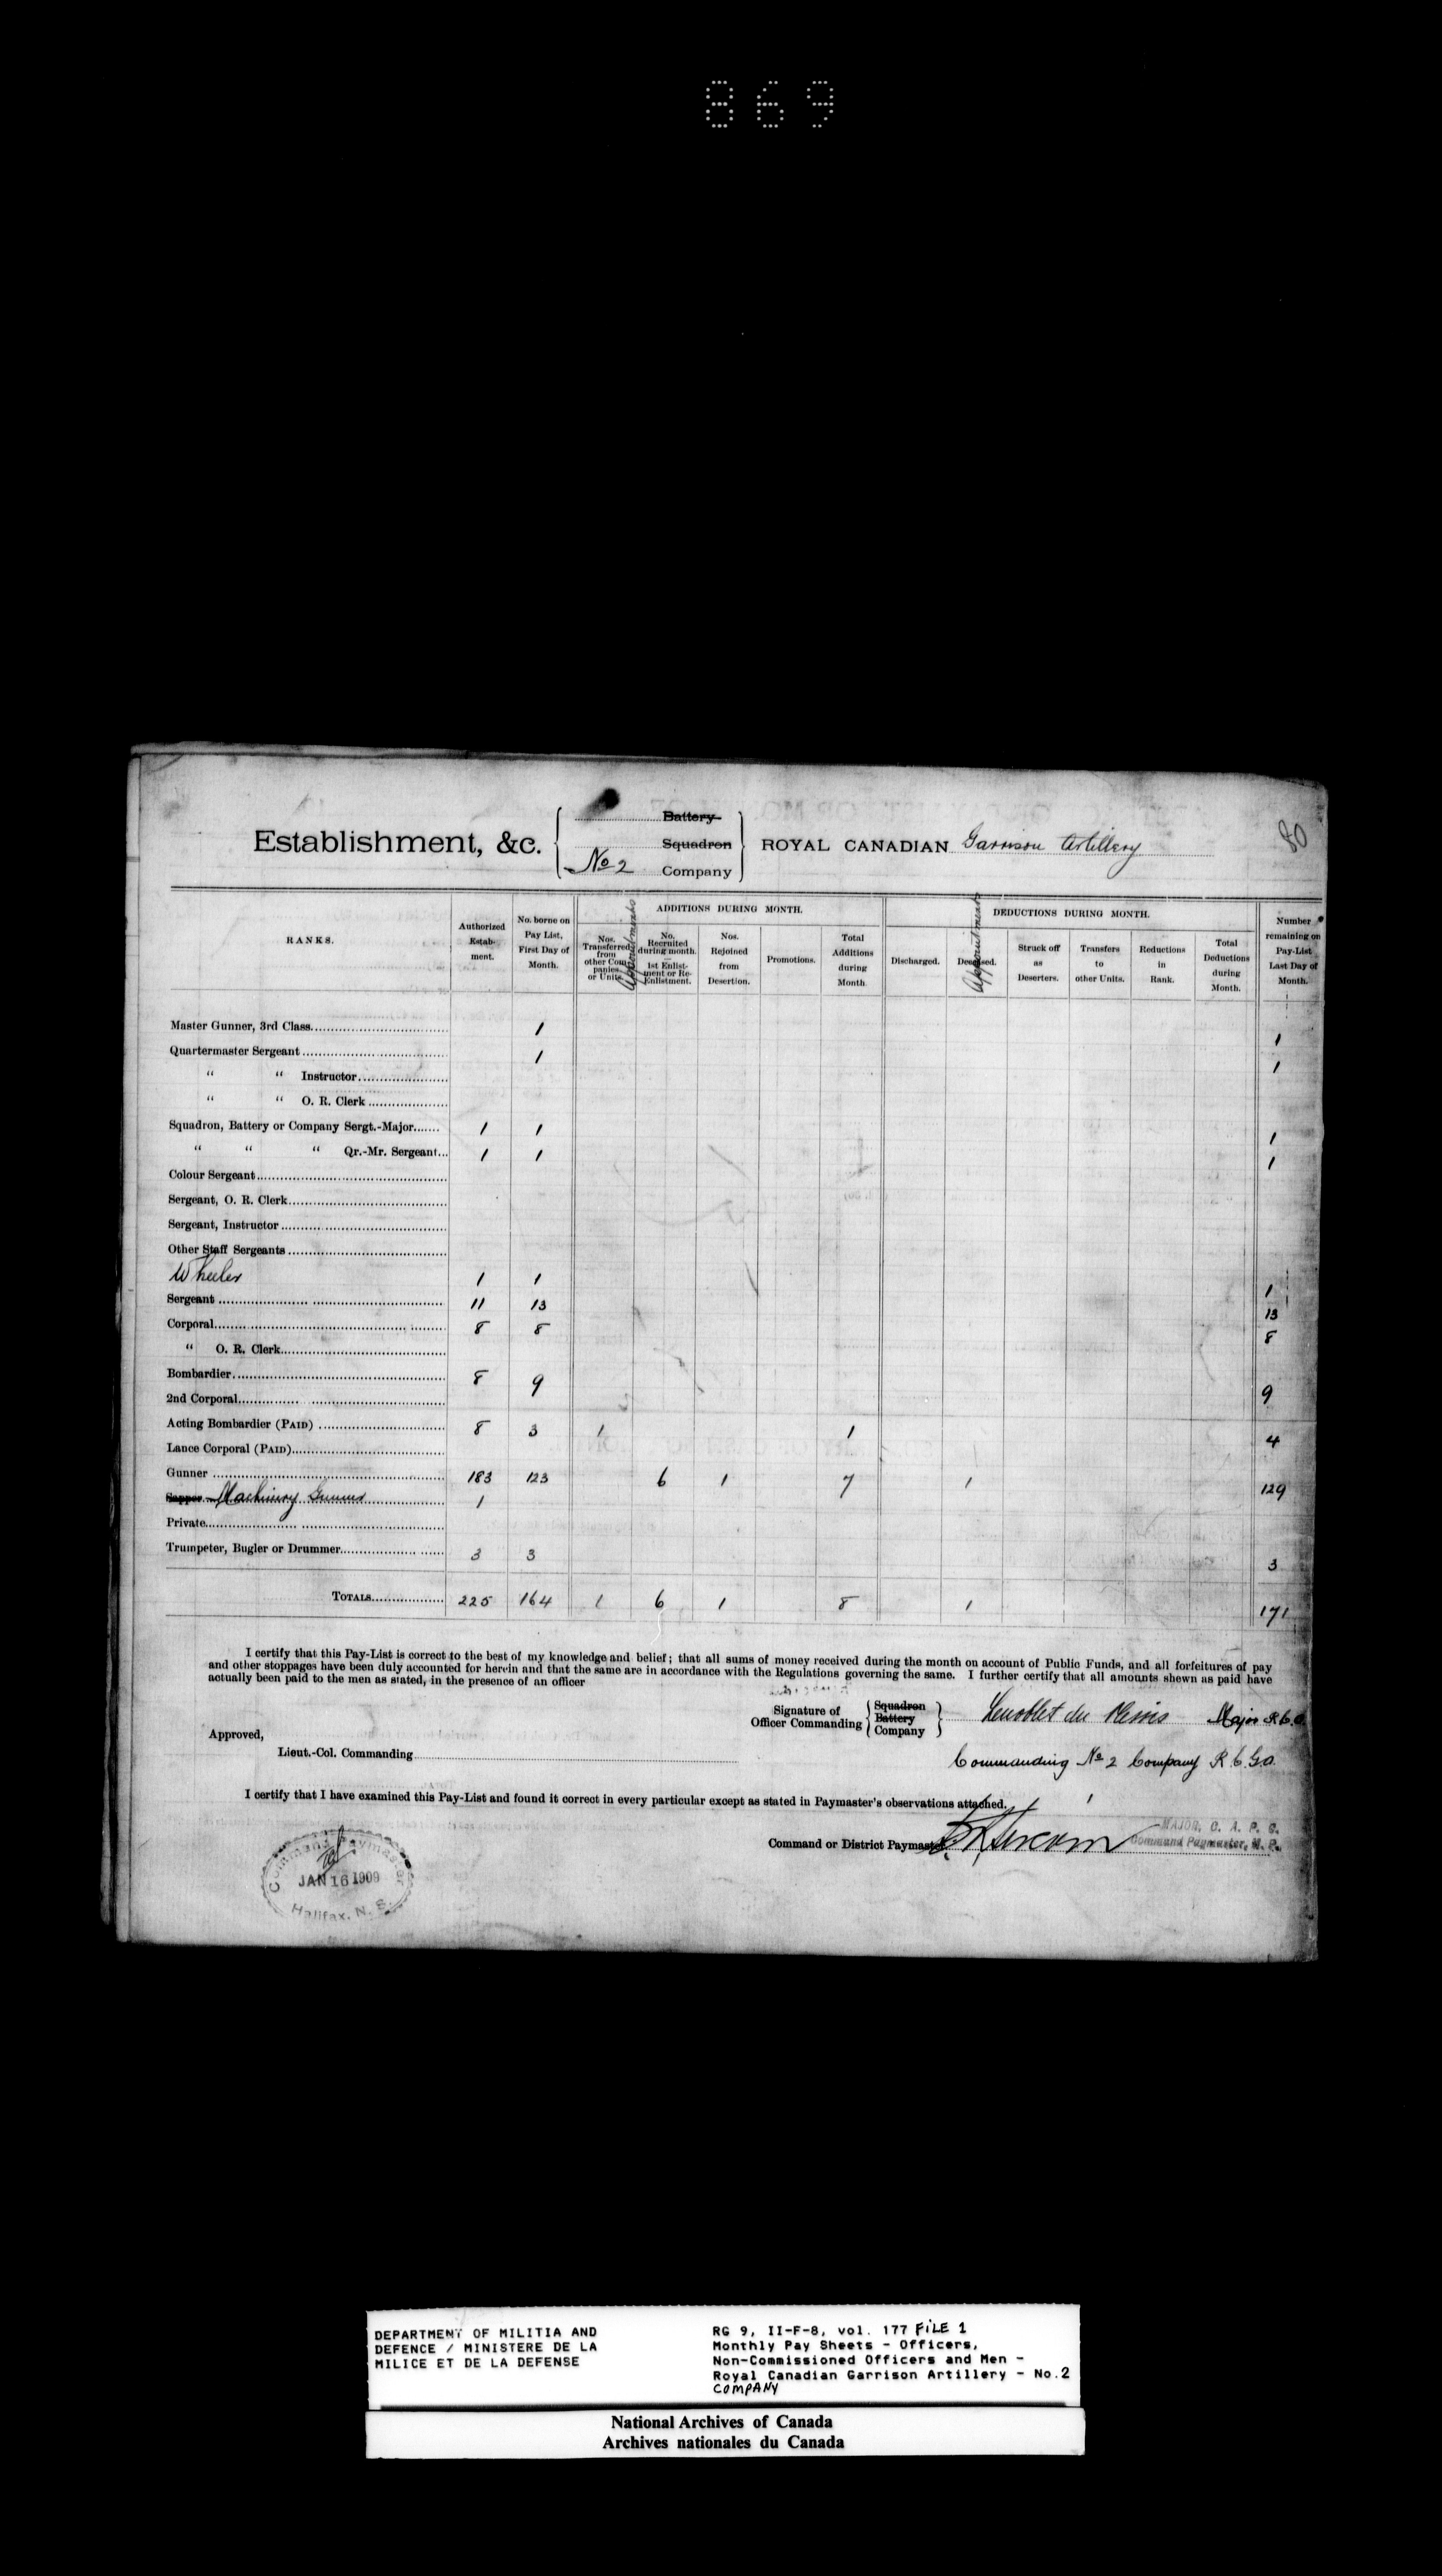 869
80
Establishment, &c. { Battery
Squadron
No 2 Company } ROYAL CANADIAN Garrison Artillery
RANKS. Authorized Estab- ment. No. borne on Pay List, First Day of Month. ADDITIONS DURING MONTH. DEDUCTIONS DURING MONTH. Number remaining on Pay-List Last Day of Month.
Nos. Transferred from other Com- panies or Units. Appointments No. Recruited during month. — 1st Enlist- ment or Re- Enlistment. Nos. Rejoined from Desertion. Promotions. Total Additions during Month. Discharged. Deceased. Appointments Struck off as Deserters. Transfers to other Units. Reductions in Rank. Total Deductions during Month.
Master Gunner, 3rd Class 1 1
Quartermaster Sergeant 1 1
" " Instructor
" " O. R. Clerk
Squadron, Battery or Company Sergt.-Major 1 1 1
" " " Qr.-Mr. Sergeant 1 1 1
Colour Sergeant
Sergeant, O. R. Clerk
Sergeant, Instructor
Other Staff Sergeants
Wheeler 1 1 1
Sergeant 11 13 13
Corporal 8 8 8
" O. R. Clerk
Bombardier 8 9 9
2nd Corporal
Acting Bombardier (PAID) 8 3 1 1 4
Lance Corporal (PAID)
Gunner 183 123 6 1 7 1 129
Sapper Machinery Gunner 1
Private
Trumpeter, Bugler or Drummer 3 3 3
TOTALS 225 164 1 6 1 8 1 171
I certify that this Pay-List is correct to the best of my knowledge and belief; that all sums of money received during the month on account of Public Funds, and all forfeitures of pay
and other stoppages have been duly accounted for herein and that the same are in accordance with the Regulations governing the same. I further certify that all amounts shewn as paid have
actually been paid to the men as stated, in the presence of an officer
Signature of Officer Commanding { Squadron
Battery
Company } Major R.C.G.A.
Approved,
Lieut.-Col. Commanding
Commanding No 2 Company R.C.G.A.
I certify that I have examined this Pay-List and found it correct in every particular except as stated in Paymaster's observations attached.
Command or District Paymaster
MAJOR, C. A. P. C.
Command Paymaster, M. P.
Command Paymaster
JAN 16 1909
Halifax, N. S.
DEPARTMENT OF MILITIA AND
DEFENCE / MINISTERE DE LA
MILICE ET DE LA DEFENSE
RG 9, II-F-8, vol. 177 FILE 1
Monthly Pay Sheets - Officers,
Non-Commissioned Officers and Men -
Royal Canadian Garrison Artillery - No.2
COMPANY
National Archives of Canada
Archives nationales du Canada